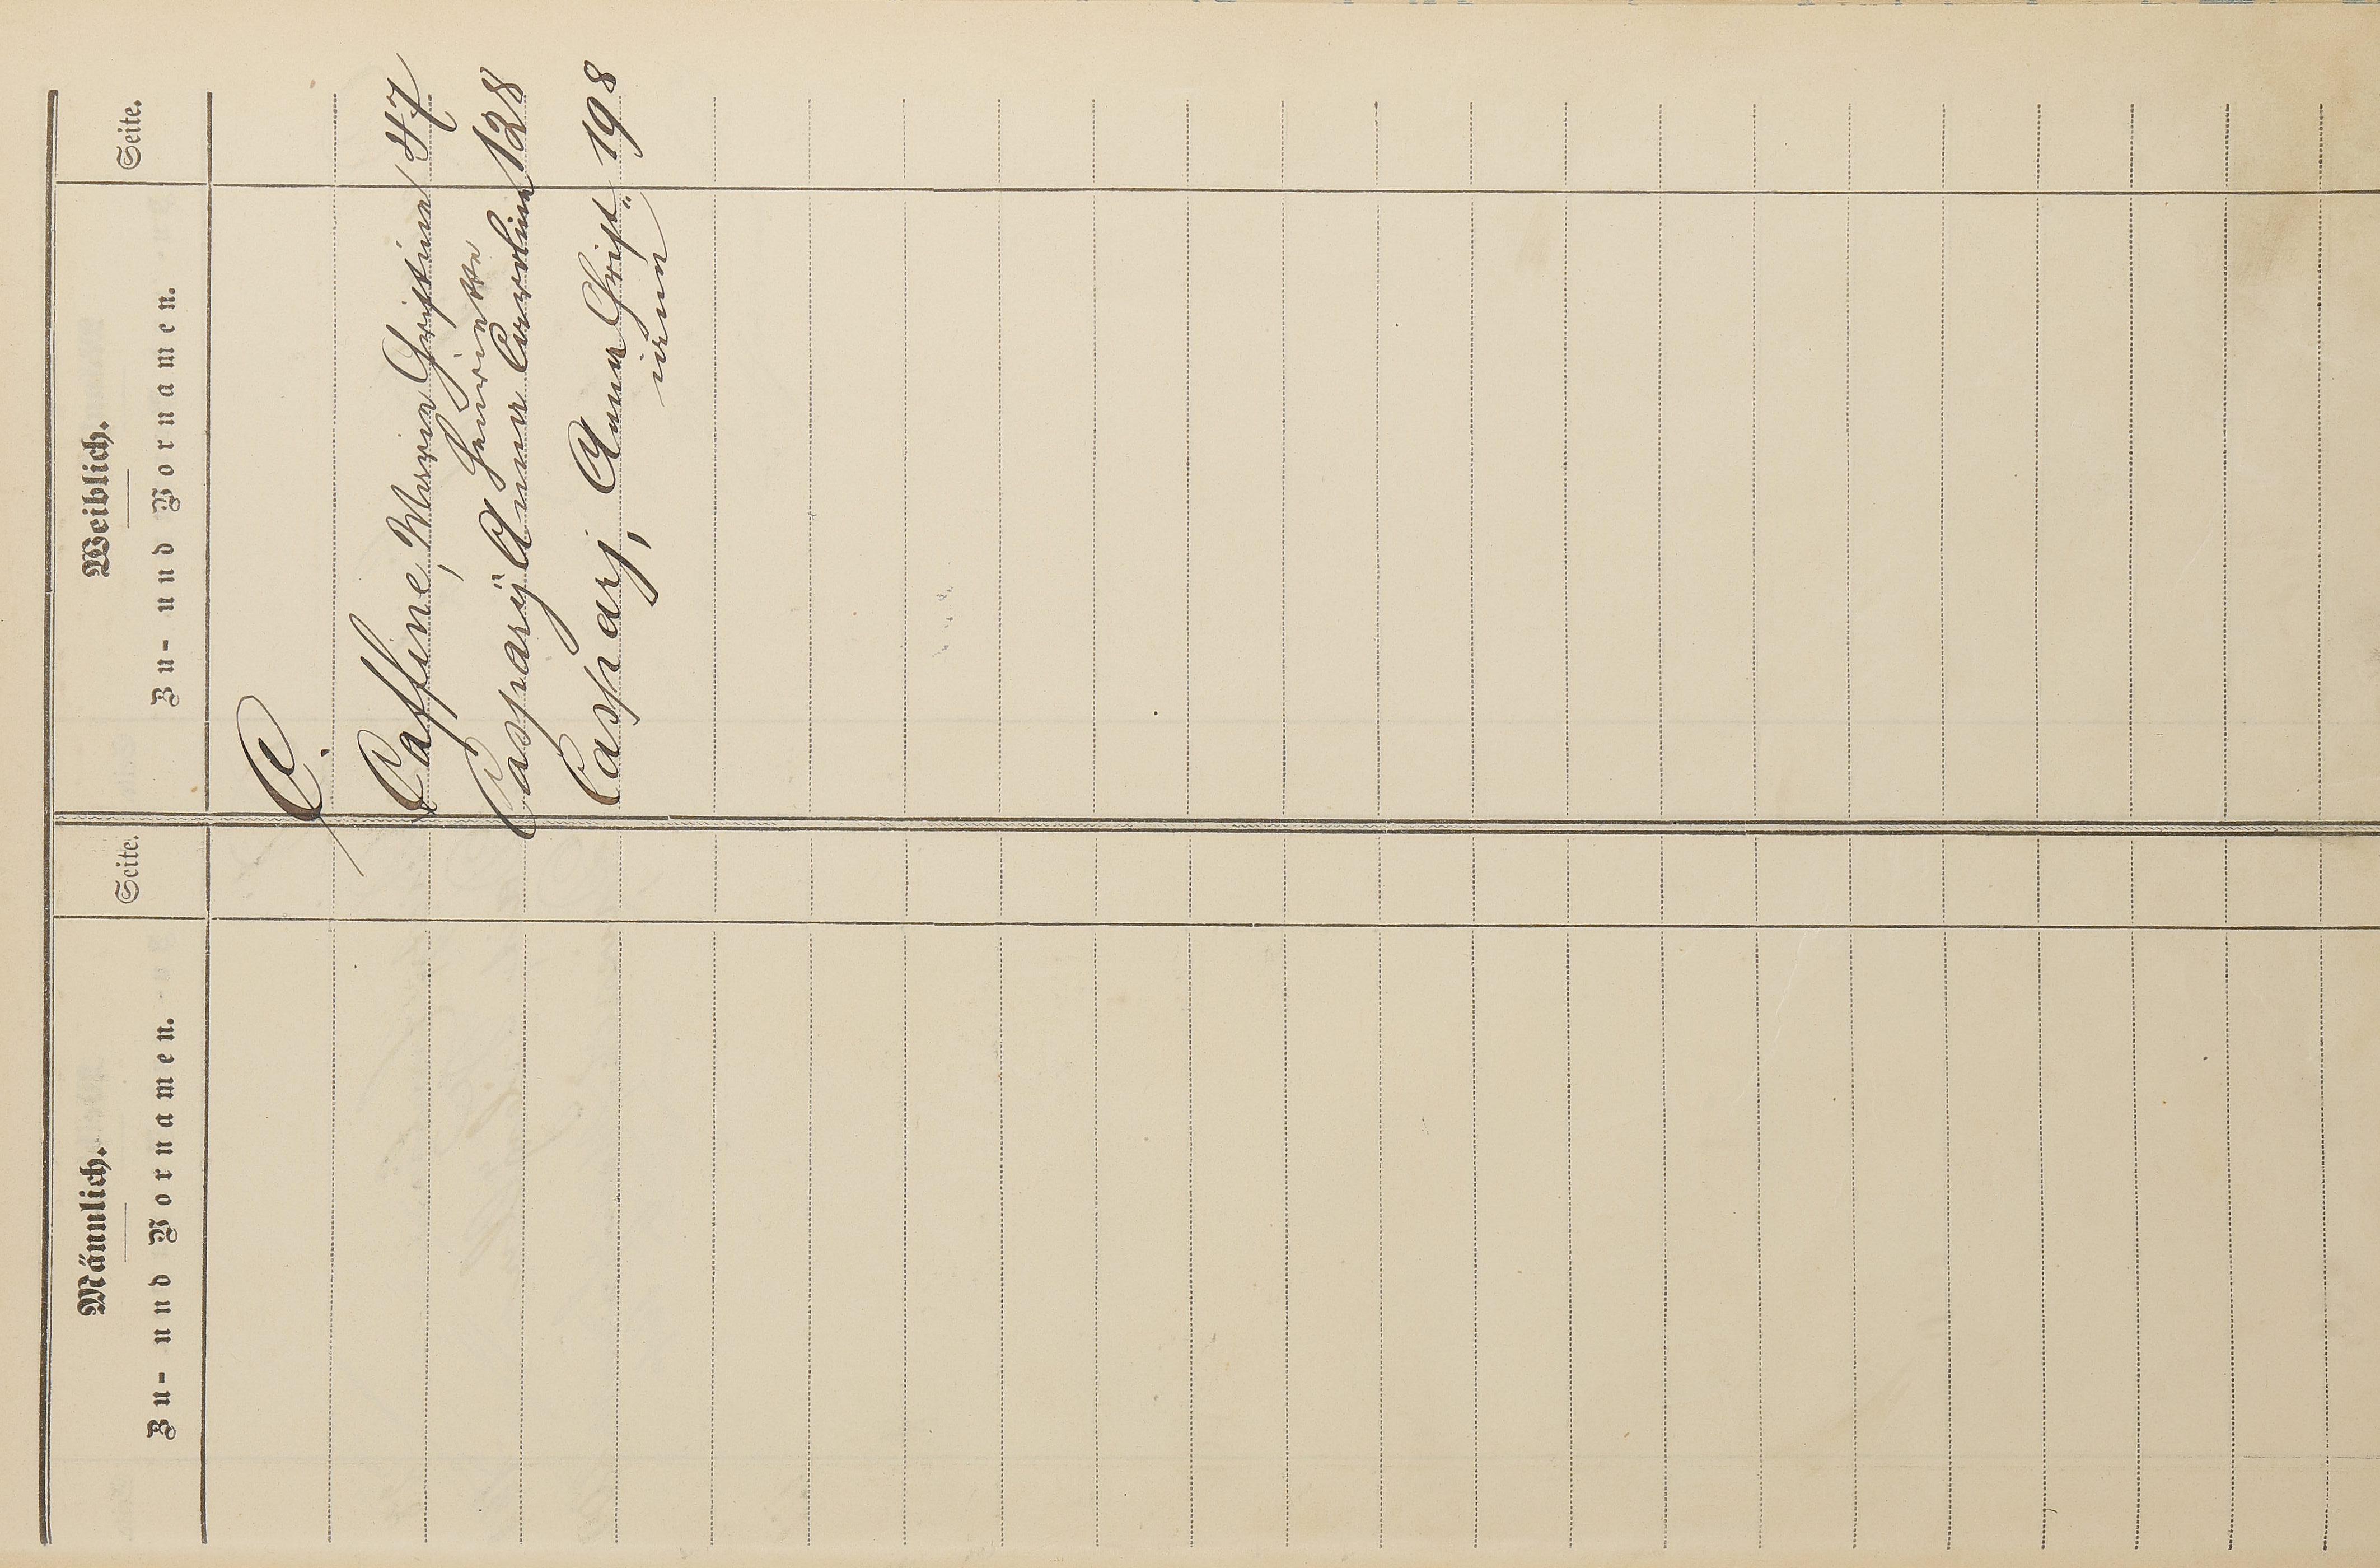 Männlich.
Zu- und Vornamen.
Seite.
Weiblich.
Zu- und Vornamen.
Seite.
C.
Caffine, Marie Christine 47
Henriette
Caspary Anna Caroline 128
Caspary, Anna Christ„ 198
iane